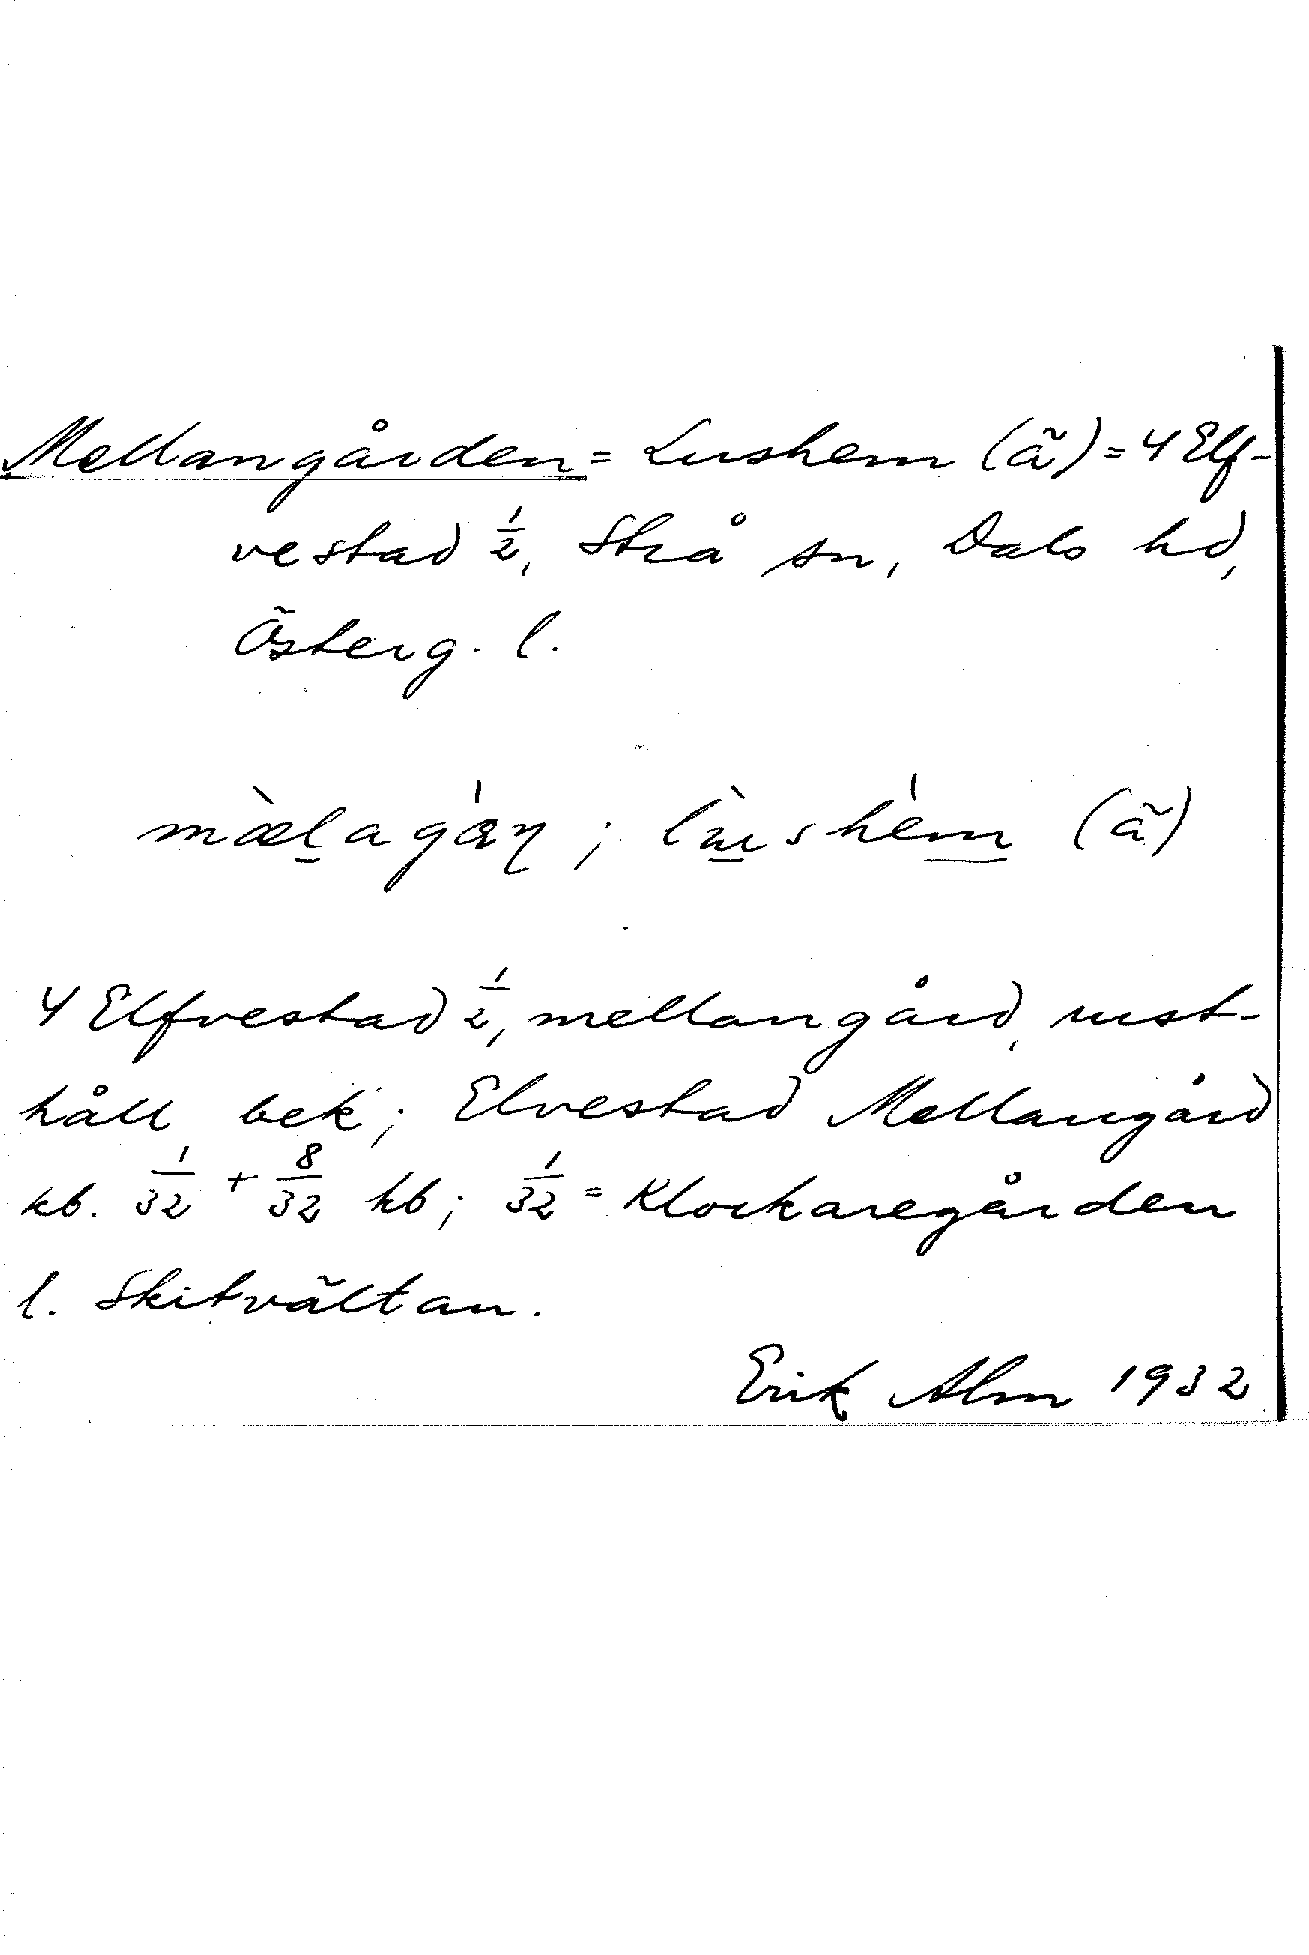 Mellangården = Lushem (ä) = 4 Elf-
vestad 1/2, Strå sn, Dals hd,
Österg. l.
mæ̀l̲agɑ́n̥; lùshém (ä)
4 Elfvestad 1/2, mellangård, rust-
håll bek; Elvestad Mellangård
kb. 1/32 + 8/32 hb; 1/32 = Klockaregården
l. Skitvältan.
Erik Alm 1932